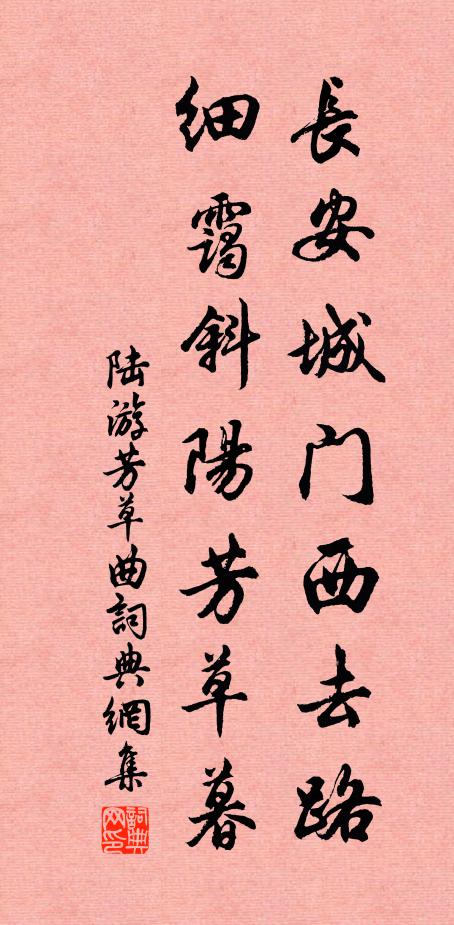 長安城门西去路
细霭斜陽芳草暮
陆游芳草曲詞典網集
詞典网印